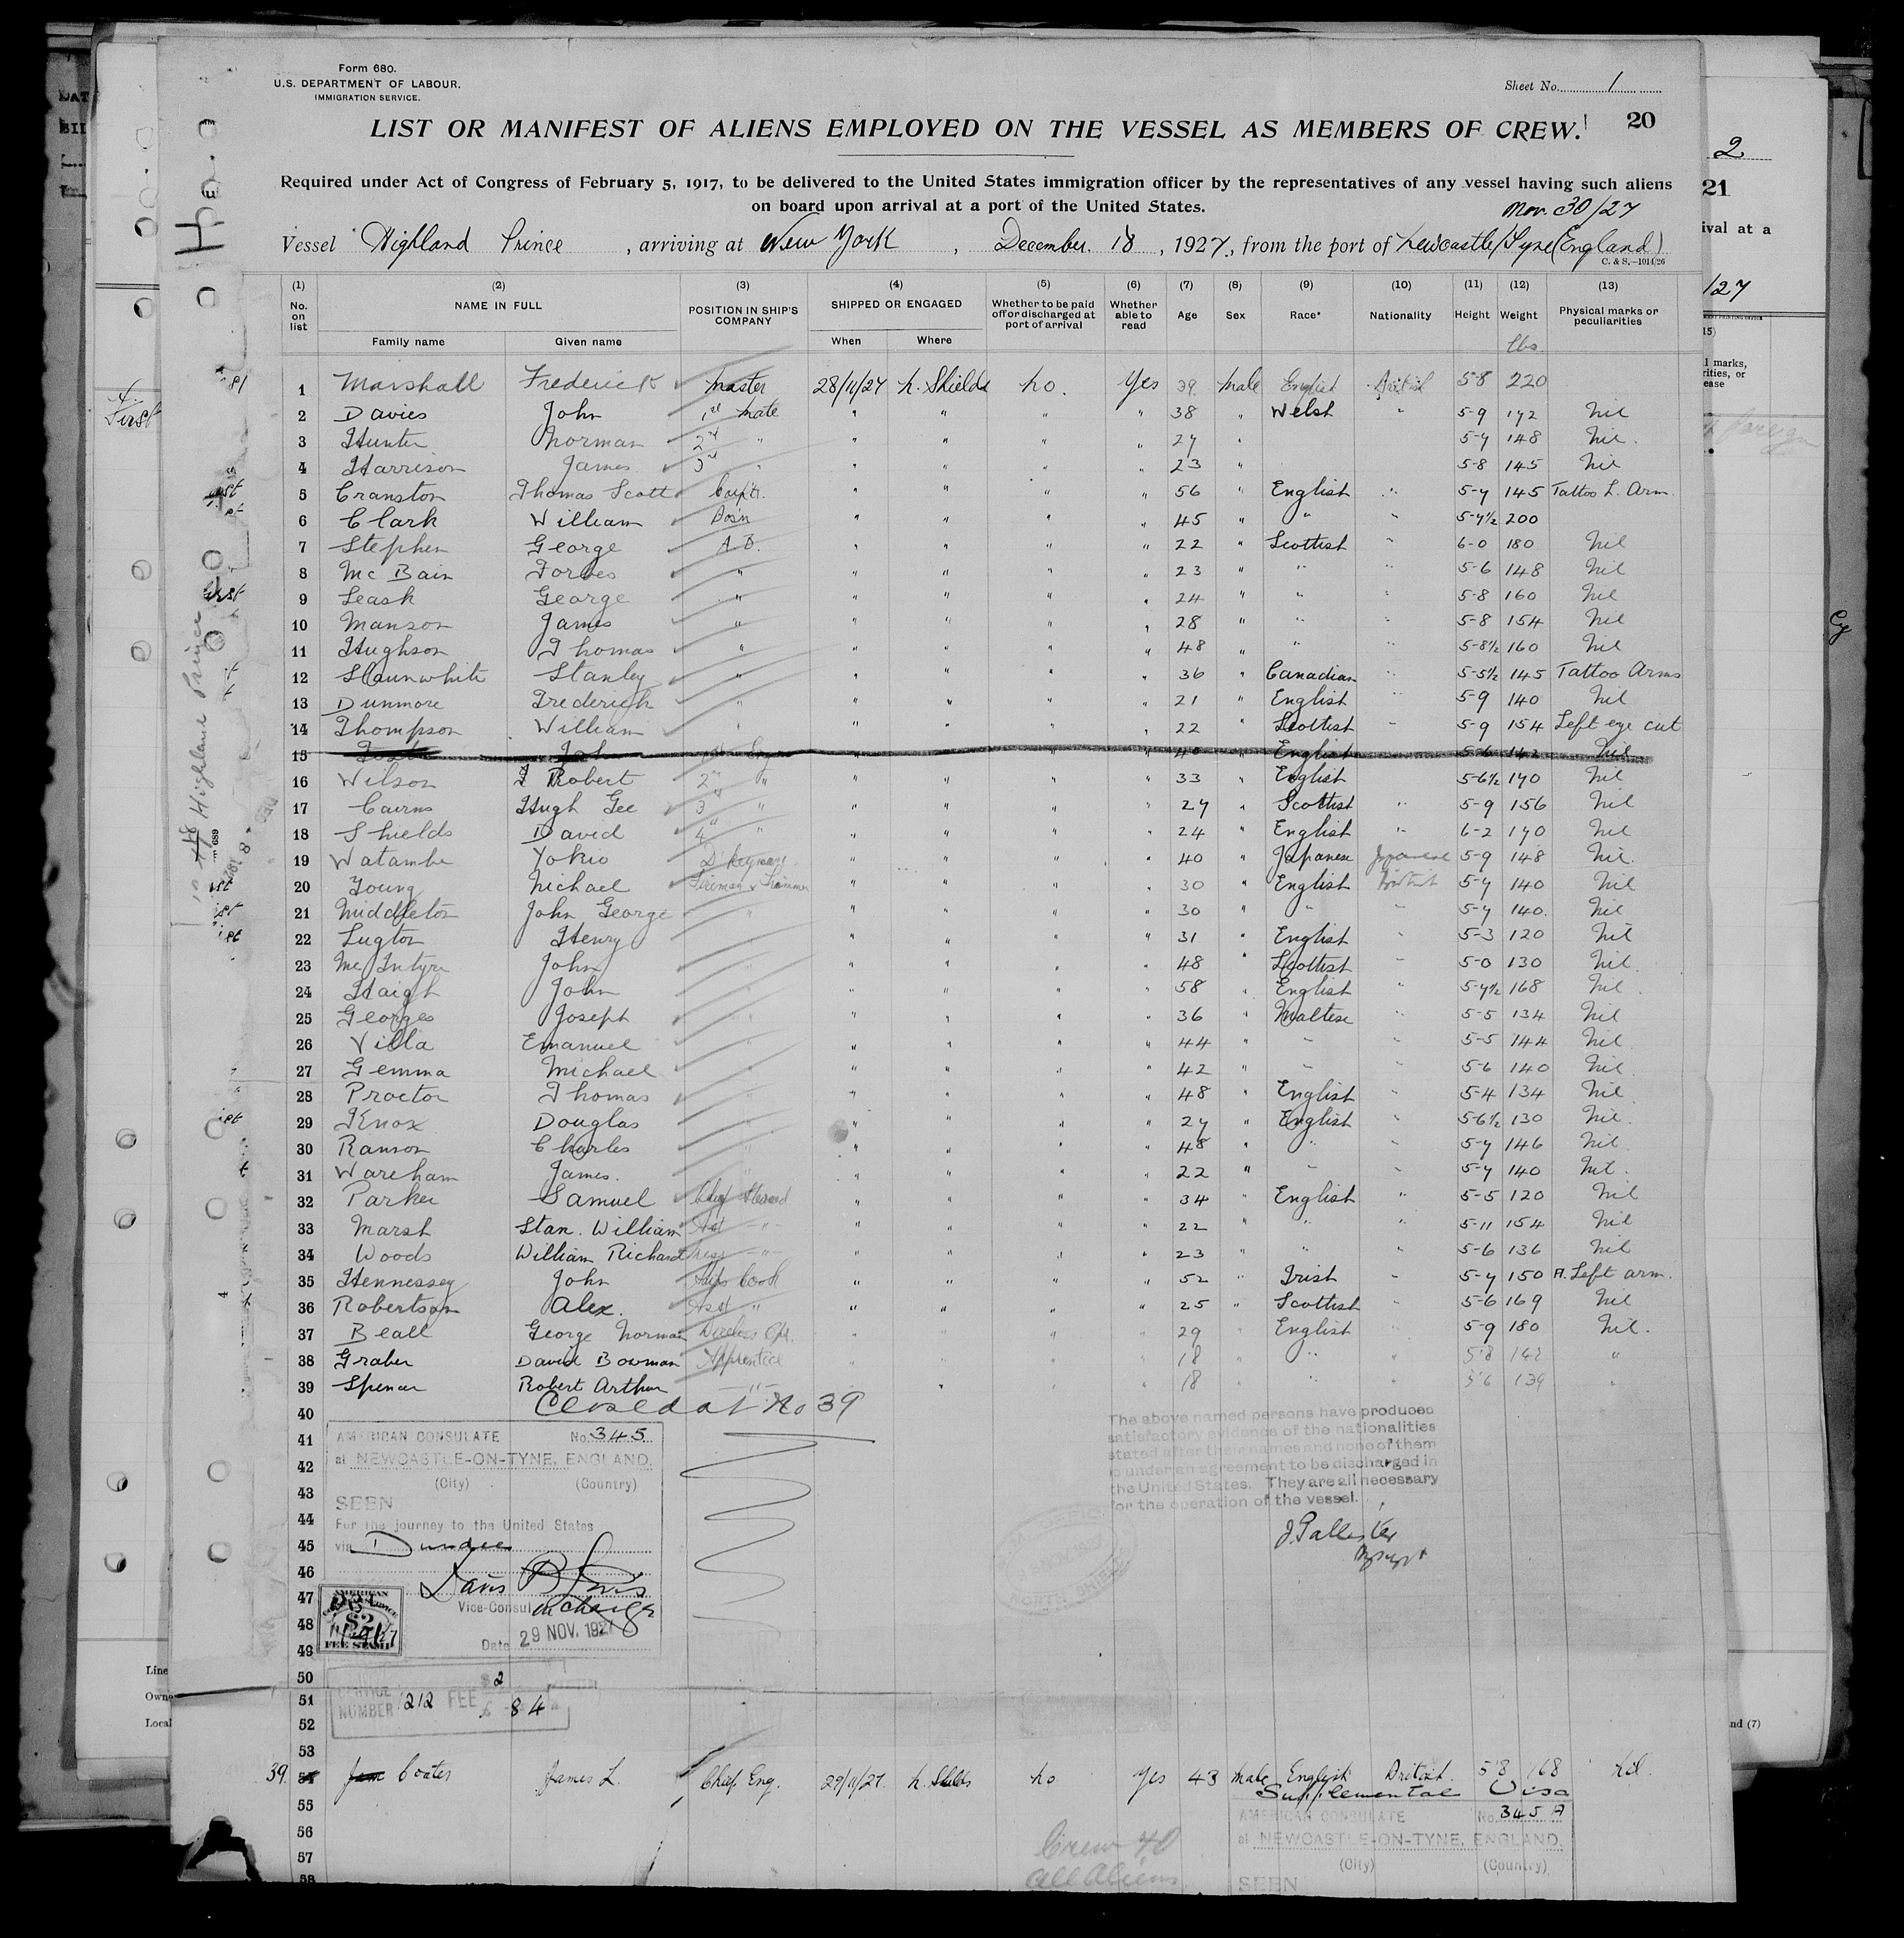 Form 680.
U.S. DEPARTMENT OF LABOUR.
IMMIGRATION SERVICE.
Sheet No. 1
LIST OR MANIFEST OF ALIENS EMPLOYED ON THE VESSEL AS MEMBERS OF CREW.
20
Required under Act of Congress of February 5, 1917, to be delivered to the United States immigration officer by the representatives of any vessel having such aliens
on board upon arrival at a port of the United States.
Nov. 30/27
Vessel Highland Prince, arriving at New York, December 18, 1927, from the port of Newcastle/Tyne (England)
C. & S.—1014/26
(1) (2) (3) (4) (5) (6) (7) (8) (9) (10) (11) (12) (13)
No. on list NAME IN FULL POSITION IN SHIP'S COMPANY SHIPPED OR ENGAGED Whether to be paid off or discharged at port of arrival Whether able to read Age Sex Race* Nationality Height Weight Physical marks or peculiarities
Family name Given name When Where lbs.
1 Marshall Frederick Master 28/11/27 N. Shields No. Yes 39 Male English British 5-8 220
2 Davies John 1st Mate " " " " 38 " Welsh " 5-9 172 Nil
3 Hunter Norman 2nd " " " " " 27 " 5-7 148 Nil.
4 Harrison James 3rd " " " " " 23 " 5-8 145 Nil
5 Cranston Thomas Scott Carp'tr. " " " " 56 " English " 5-7 145 Tattoo L. Arm.
6 Clark William Bos'n " " " " 45 " " " 5-7½ 200
7 Stephen George A.B. " " " " 22 " Scottish " 6-0 180 Nil
8 Mc Bain Forbes " " " " " 23 " " " 5-6 148 Nil
9 Leask George " " " " " 24 " " " 5-8 160 Nil
10 Manson James " " " " " 28 " " " 5-8 154 Nil
11 Hughson Thomas " " " " " 48 " " " 5-8½ 160 Nil
12 Slaunwhite Stanley " " " " " 36 " Canadian " 5-5½ 145 Tattoo Arms
13 Dunmore Frederick " " " " " 21 " English " 5-9 140 Nil
14 Thompson William " " " " " 22 " Scottish " 5-9 154 Left eye cut
15 John " " " " 40 " English " 5-6 142 Nil
16 Wilson Robert 2nd " " " " " 33 " English " 5-6½ 170 Nil
17 Cairns Hugh Gee 3rd " " " " " 27 " Scottish " 5-9 156 Nil
18 Shields David 4th " " " " " 24 " English " 6-2 170 Nil
19 Watambe Yokio D'keyman " " " " 40 " Japanese Japanese 5-9 148 Nil.
20 Young Michael Fireman & Trimmer " " " " 30 " English British 5-7 140 Nil
21 Middleton John George " " " " " 30 " " " 5-7 140. Nil
22 Lugton Henry " " " " " 31 " English " 5-3 120 Nil
23 Mc Intyre John " " " " " 48 " Scottish " 5-0 130 Nil.
24 Haigh John " " " " " 58 " English " 5-7½ 168 Nil.
25 Georges Joseph " " " " " 36 " Maltese " 5-5 134 Nil
26 Villa Emanuel " " " " " 44 " " " 5-5 144 Nil
27 Gemma Michael " " " " " 42 " " " 5-6 140 Nil.
28 Proctor Thomas " " " " " 48 " English " 5-4 134 Nil
29 Knox Douglas " " " " " 27 " English " 5-6½ 130 Nil.
30 Ranson Charles " " " " " 48 " " " 5-7 146 Nil
31 Wareham James. " " " " " 22 " " " 5-7 140 Nil.
32 Parker Samuel Chief Steward " " " " 34 " English " 5-5 120 Nil
33 Marsh Stan. William Asst " " " " " 22 " " " 5-11 154 Nil
34 Woods William Richard Mess " " " " " 23 " " " 5-6 136 Nil
35 Hennessey John Ships Cook " " " " 52 " Irish " 5-7 150 A. Left arm.
36 Robertson Alex. Asst " " " " " 25 " Scottish " 5-6 169 Nil
37 Beall George Norman Wireless Opr. " " " " 29 " English " 5-9 180 Nil.
38 Graber David Bowman Apprentice " " " " 18 " " " 5'8 142 "
39 Spencer Robert Arthur " " " " " 18 " " " 5'6 139 "
Closed at No 39
40
41
42
43
44
45
46
47
48
49
50
51
52
53
AMERICAN CONSULATE No. 345
at NEWCASTLE-ON-TYNE, ENGLAND.
(City) (Country)
SEEN
For the journey to the United States
via Dundee
Vice-Consul in charge
Date 29 NOV. 1927
AMERICAN
$2
FEE STAMP
SERVICE NUMBER 1212 FEE $2
£ 8 4
The above named persons have produced
satisfactory evidence of the nationalities
stated after their names and none of them
is under an agreement to be discharged in
the United States. They are all necessary
for the operation of the vessel.
39. Coates James L. Chief Eng. 29/11/27. N. Shields No Yes 43 Male English British 5'8 168 Nil.
Supplemental Visa
55
56
57
58
AMERICAN CONSULATE No. 345 A
at NEWCASTLE-ON-TYNE, ENGLAND.
(City) (Country)
SEEN
Crew 40
all aliens
Highland Prince
First
2
21
ival at a
/27
Line
Owne
Local
nd (7)